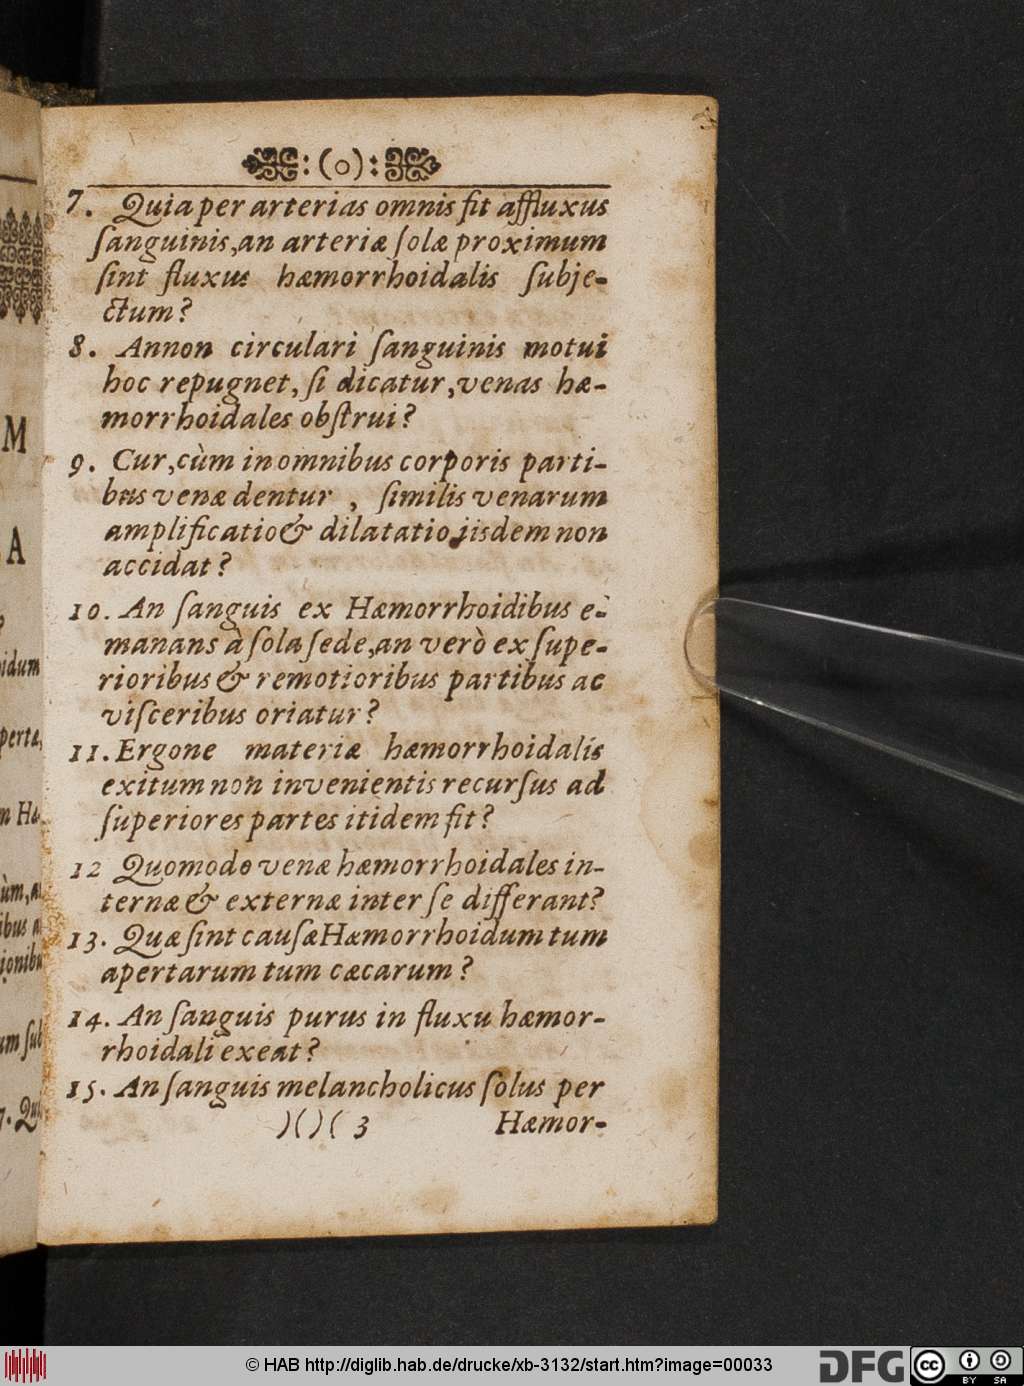 :(o):
7. Quia per arterias omnis fit affluxus
ſanguinis, an arteriæ ſolæ proximum
ſint fluxus hæmorrhoidalis ſubje-
ctum?
8. Annon circulari ſanguinis motui
hoc repugnet, ſi dicatur, venas hæ-
morrhoidales obſtrui?
9. Cur, cùm in omnibus corporis parti-
bus venæ dentur, ſimilis venarum
amplificatio & dilatatio iisdem non
accidat?
10. An ſanguis ex Hæmorrhoidibus e-
manans à ſola ſede, an verò ex ſupe-
rioribus & remotioribus partibus ac
viſceribus oriatur?
11. Ergone materiæ hæmorrhoidalis
exitum non invenientis recurſus ad
ſuperiores partes itidem fit?
12 Quomodo venæ hæmorrhoidales in-
ternæ & externæ inter ſe differant?
13. Quæ ſint cauſæ Hæmorrhoidum tum
apertarum tum cæcarum?
14. An ſanguis purus in fluxu hæmor-
rhoidali exeat?
15. An ſanguis melancholicus ſolus per
)()( 3 Hæmor-
M
A
pertæ,
7. Qui
© HAB http://diglib.hab.de/drucke/xb-3132/start.htm?image=00033
DFG
cc BY SA